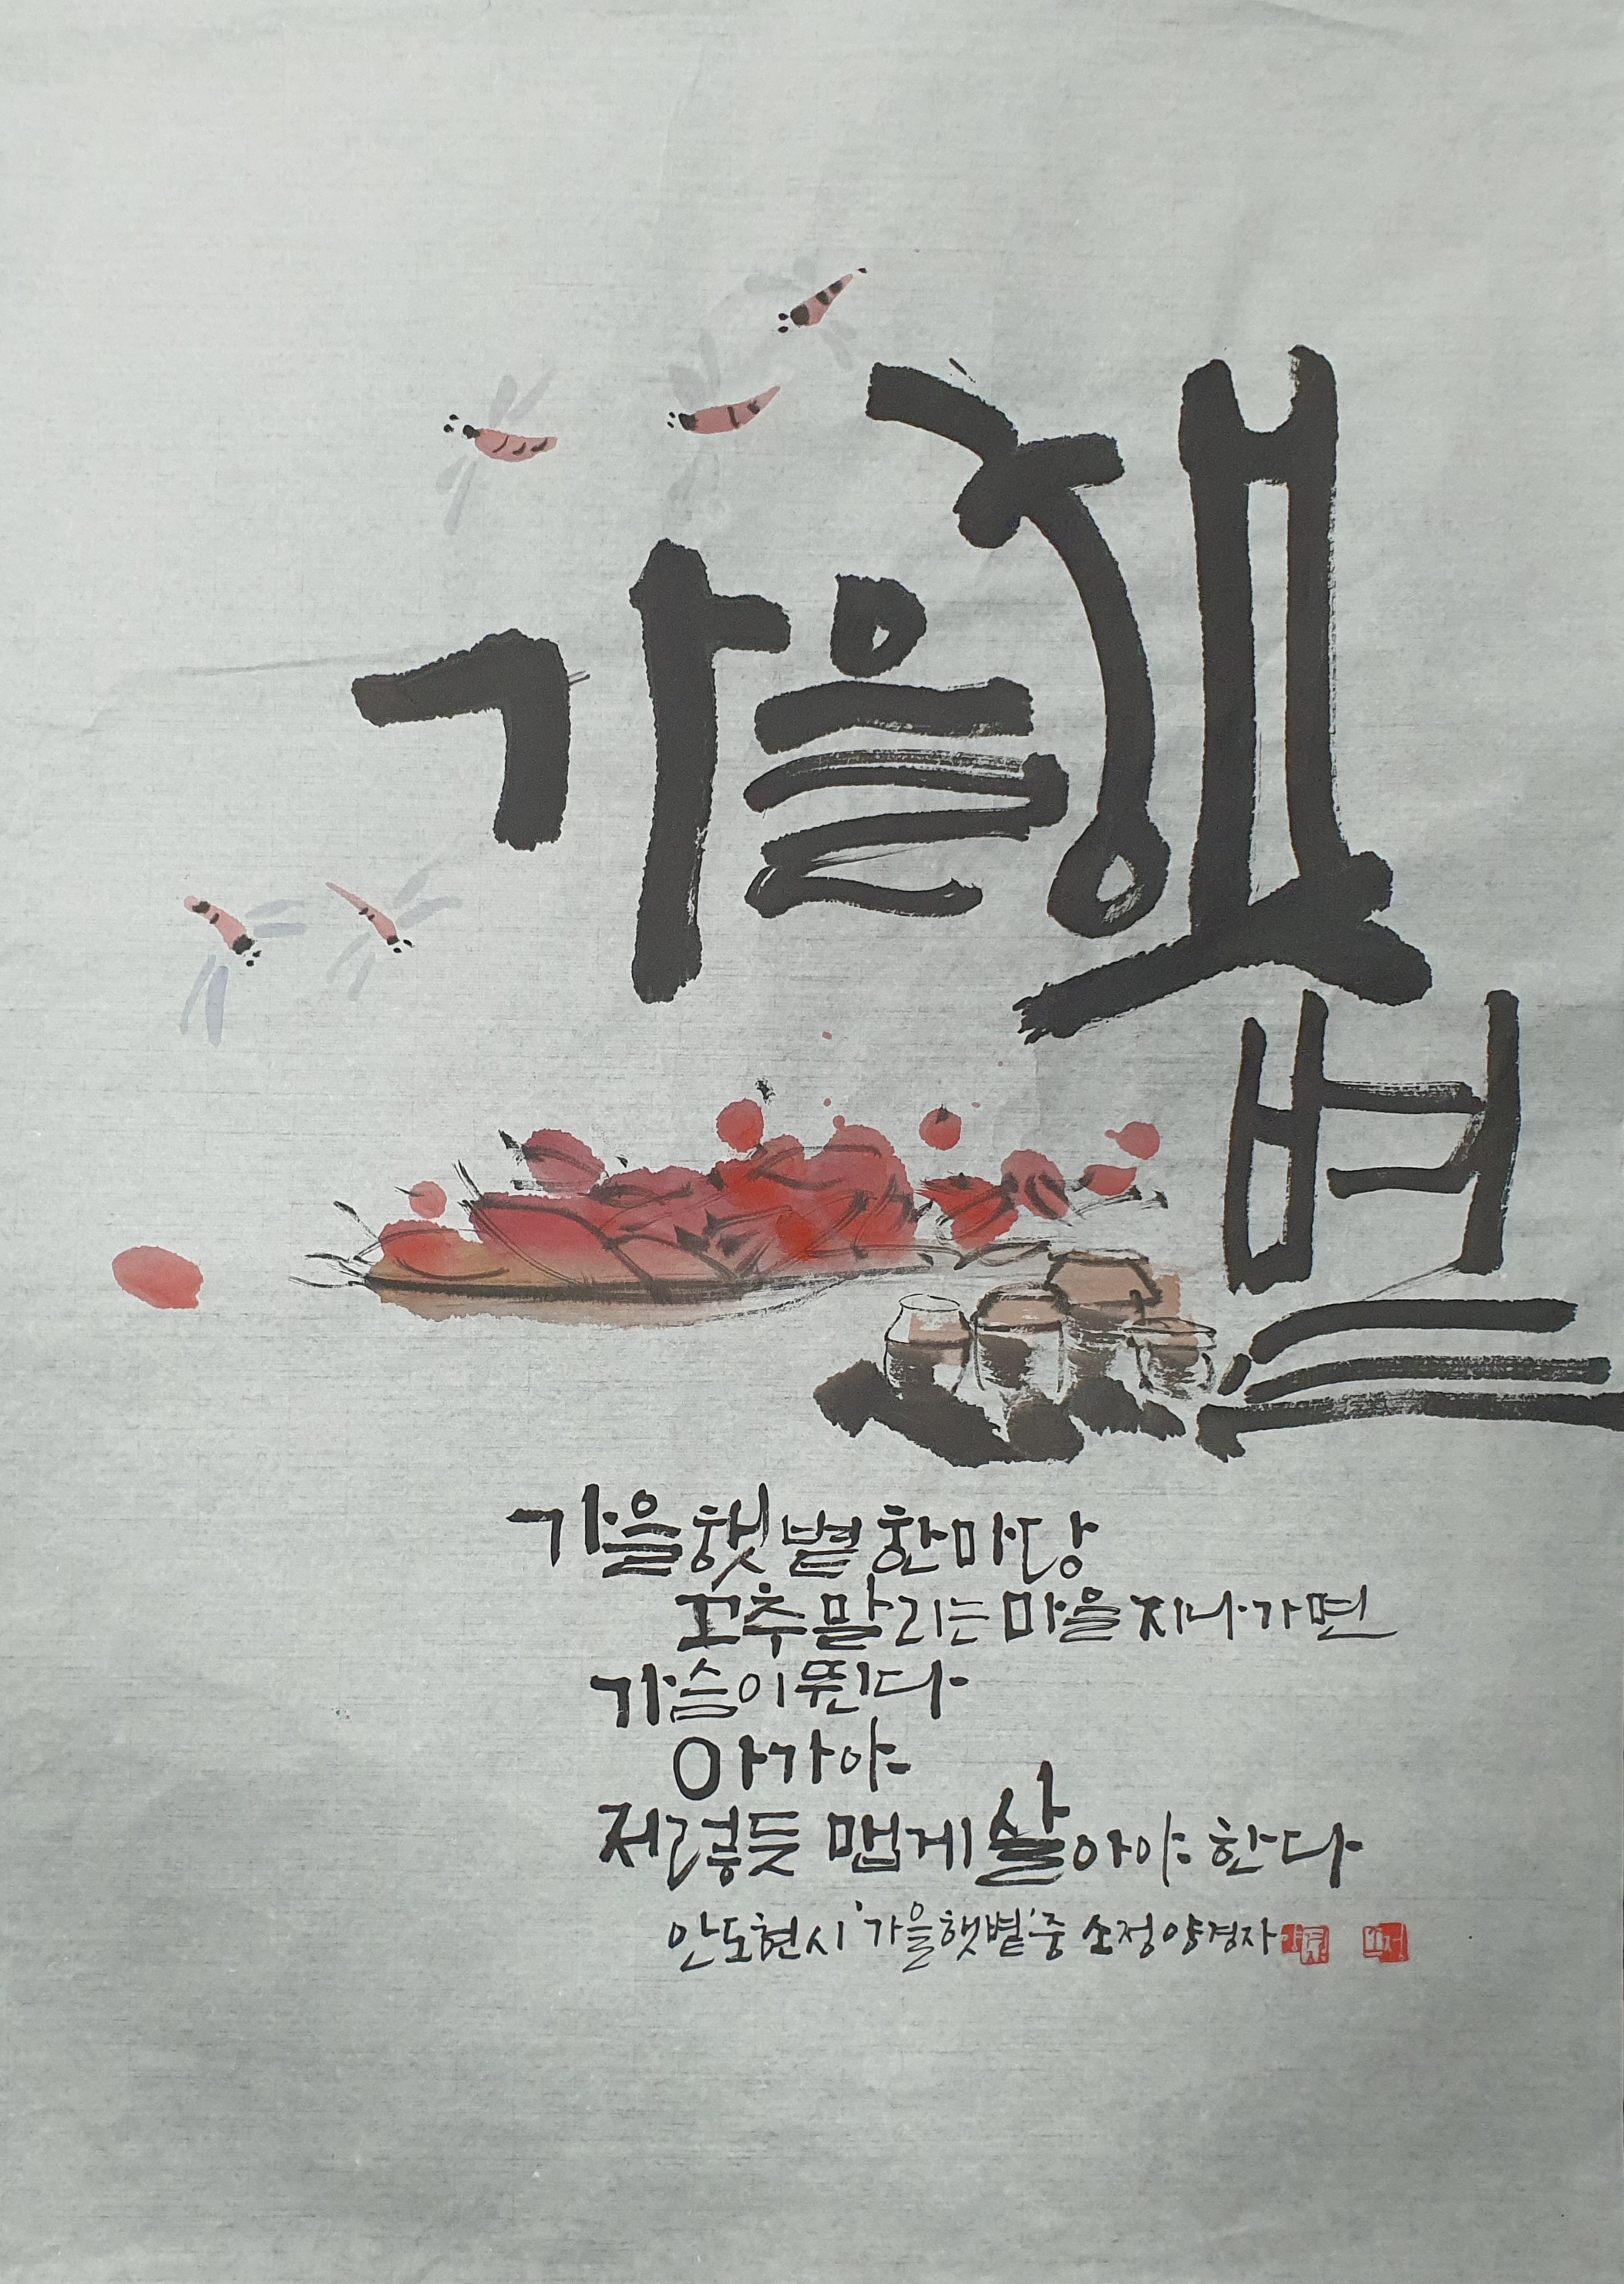 가을햇
볕
가을햇볕 한마당
고추말리는 마을 지나가면
가슴이 뛴다
아가야
저렇듯 맵게 살아야 한다
안도현시 '가을햇볕' 중 소정 양경자